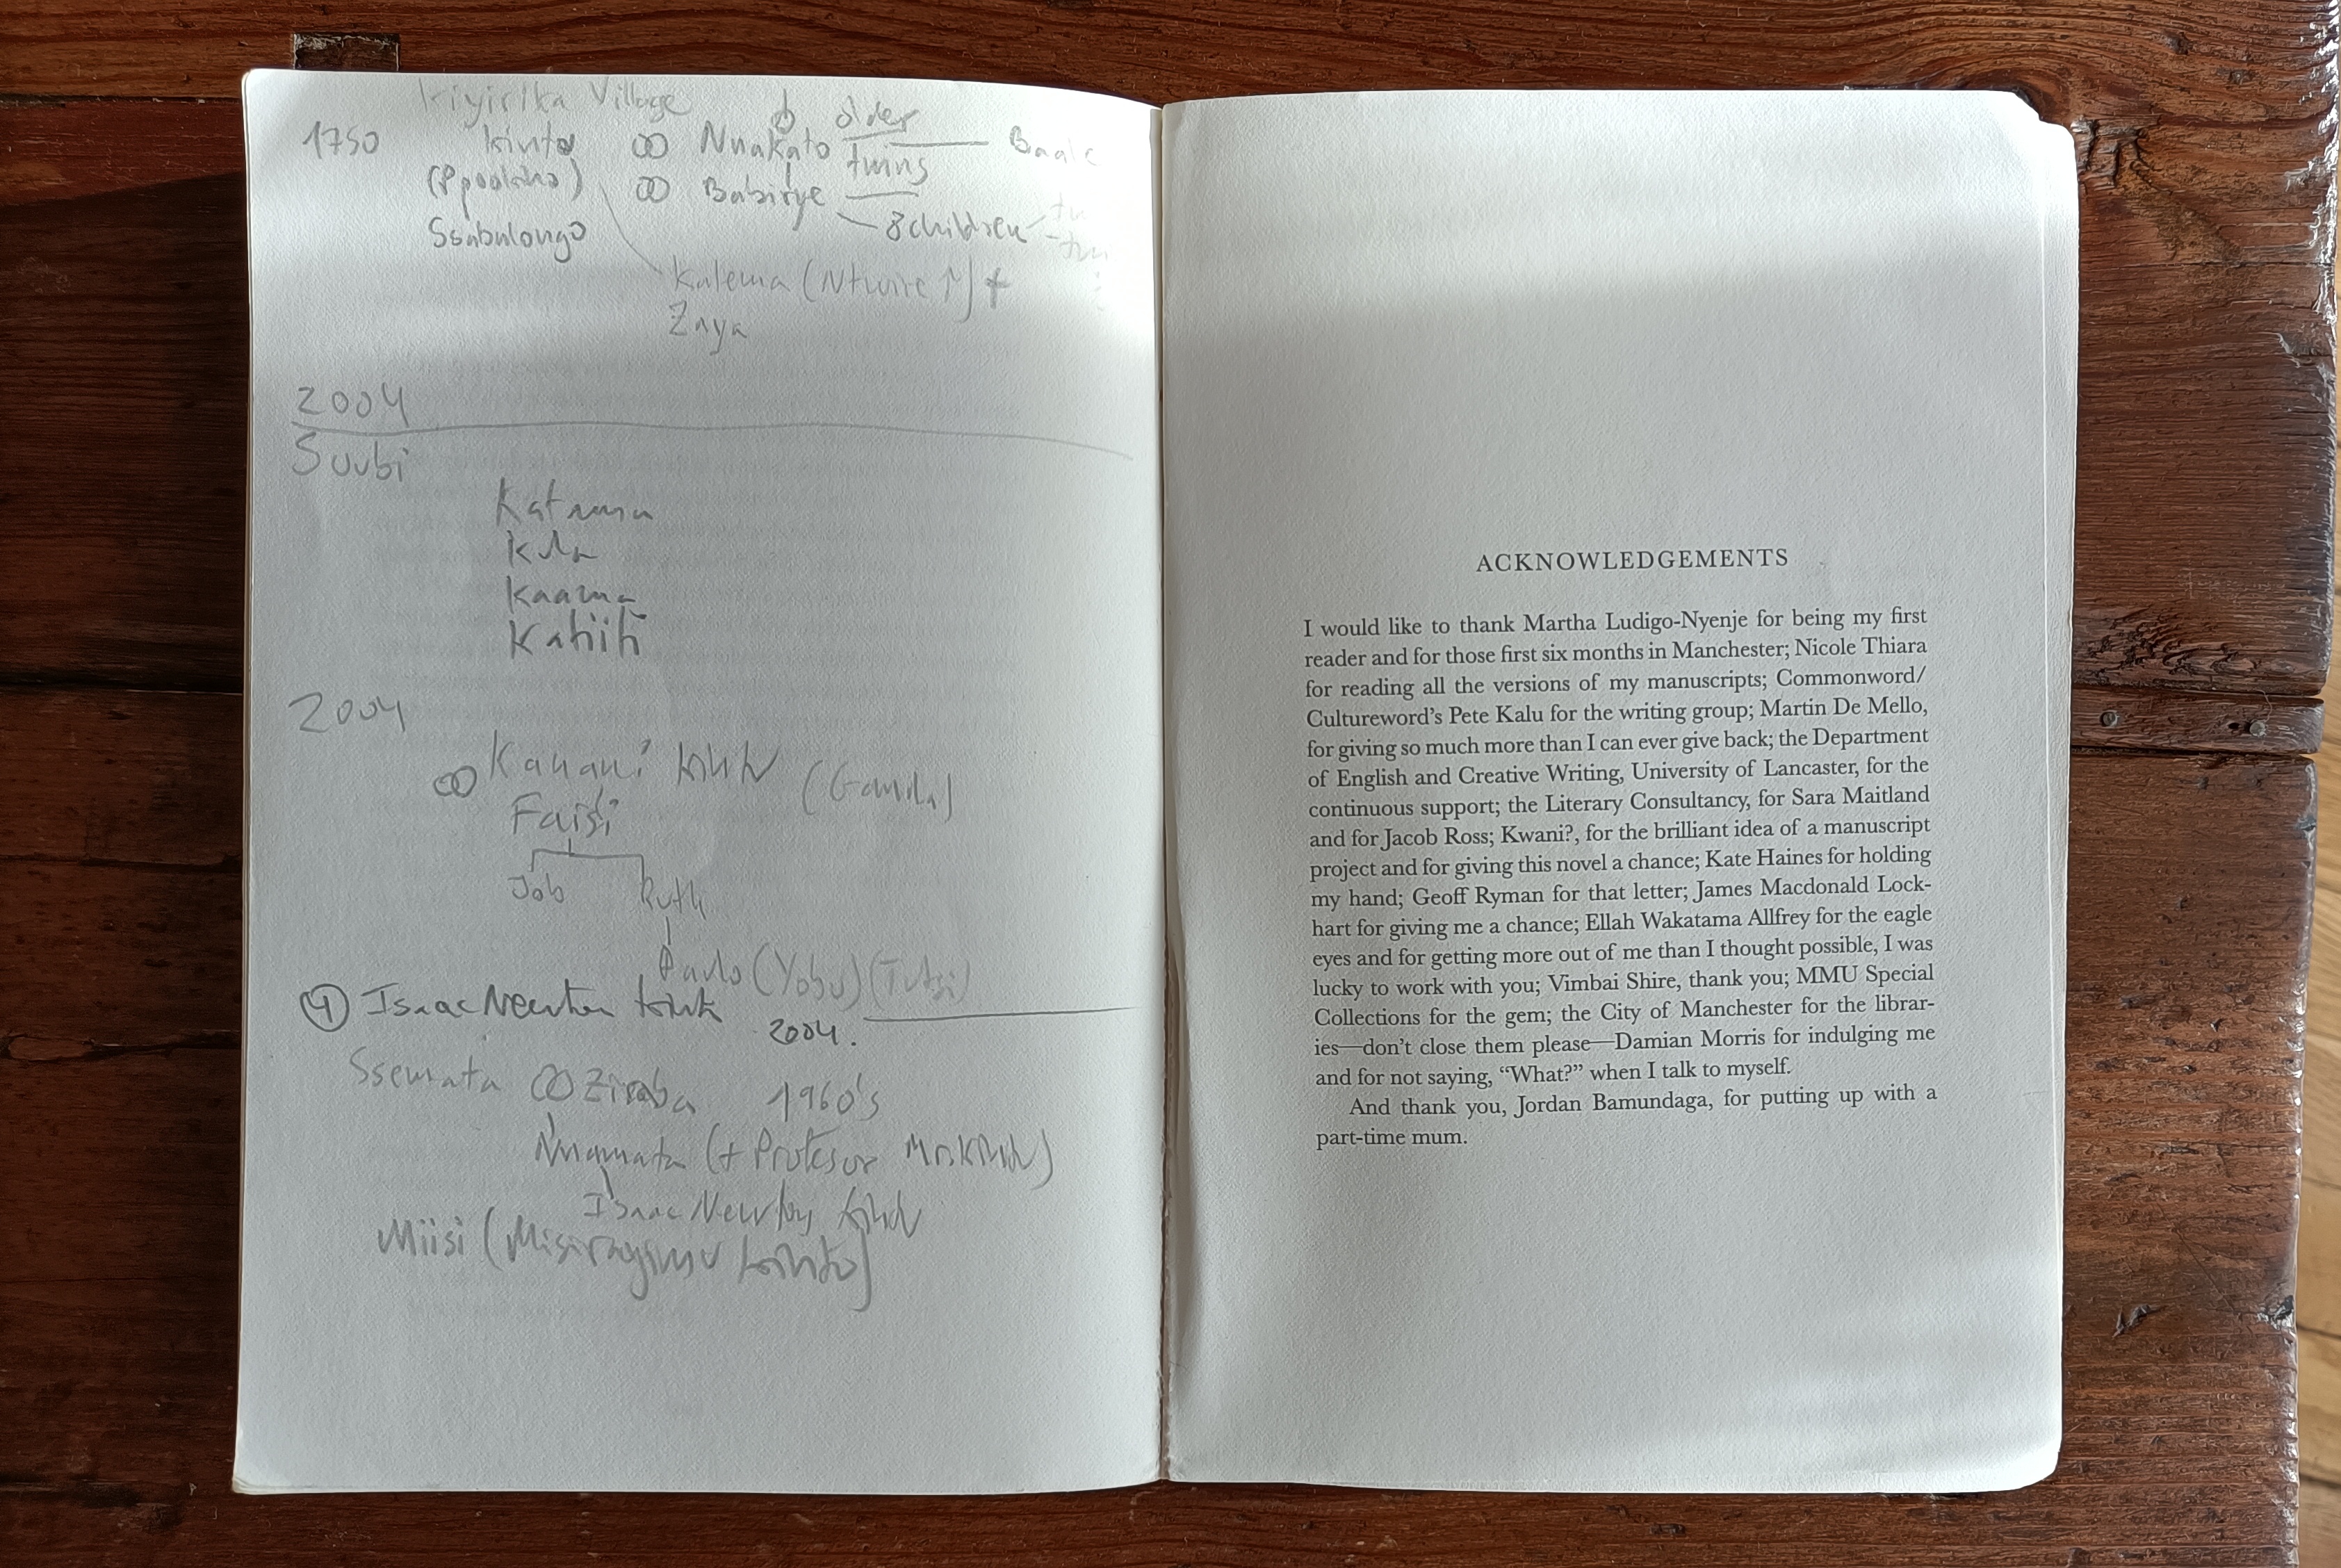 Kiyirika Village
1750 Kintu ∞ Nnakato older Baale
twins
(Ppookino) ∞ Babirye
Ssabalongo 8 children
Kalema (Ntwire ↑) †
Zaya
2004
Suubi
Katama
Kula
Kaama
Katiiti
2004
∞ Kanani Kintu (Ganda)
Faisi
Job Ruth
Paulo (Yobu) (Tutsi)
④ Isaac Newton Kintu
2004.
Ssemata ∞ Ziraba 1960's
Nnamata (+ Profesor Mr Kintu)
Isaac Newton Kintu
Miisi (Misirayimu Kintu)
ACKNOWLEDGEMENTS
I would like to thank Martha Ludigo-Nyenje for being my first
reader and for those first six months in Manchester; Nicole Thiara
for reading all the versions of my manuscripts; Commonword/
Cultureword’s Pete Kalu for the writing group; Martin De Mello,
for giving so much more than I can ever give back; the Department
of English and Creative Writing, University of Lancaster, for the
continuous support; the Literary Consultancy, for Sara Maitland
and for Jacob Ross; Kwani?, for the brilliant idea of a manuscript
project and for giving this novel a chance; Kate Haines for holding
my hand; Geoff Ryman for that letter; James Macdonald Lock-
hart for giving me a chance; Ellah Wakatama Allfrey for the eagle
eyes and for getting more out of me than I thought possible, I was
lucky to work with you; Vimbai Shire, thank you; MMU Special
Collections for the gem; the City of Manchester for the librar-
ies—don’t close them please—Damian Morris for indulging me
and for not saying, “What?” when I talk to myself.
And thank you, Jordan Bamundaga, for putting up with a
part-time mum.